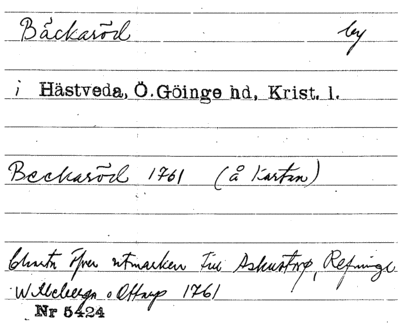 Bäckaröd by
i Hästveda, Ö. Göinge hd, Krist. l.
Beckaröd 1761 (å kartan)
Charta öfver utmarken till Askustorp, Refninge
o Ottarp 1761
Nr 5424